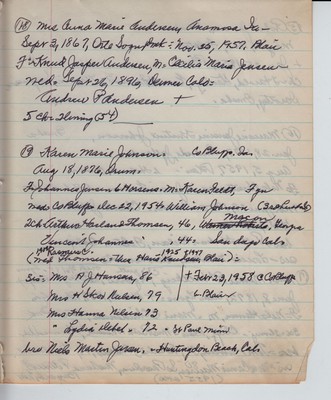 (18) Mrs Anna Marie Andersen, Anamosa Ia -
Sept 3, 1867, Oster Sogn, - Nov. 25, 1957, Blair
F= Knud Jasper Andersen, M= Cecilia Marie Jensen
wed= Sept 26, 1896, Denver Colo=
Andrew P Andersen +
5 chr= living (54)
(19) Karen Marie Johnson. Co Bluffs, Ia.
Aug 18, 1876, Drum.
F= Johannes Jensen & Horsens. M= Karen Fynn
wed= Co Bluffs Dec 22, 1954= William Johnson
2ch Arthur Leland Thomsen, 46, Macon, Georgia
" Vincent Johannes " , 44. San Diego Calif
(wed Thomsen= then Hans Knudsen, Blair)=
1925 1947
Sis= Mrs A. J. Hansen, 86
Mrs H Skov Nielsen, 79
Mrs Hanna Nelson 73
" Lydia Debel " 72 - St Paul Minn
+ Feb 23, 1958 @ Co Bluffs
b. Blair
bro Niels Martin Jensen, - Huntingdon Beach, Cal=